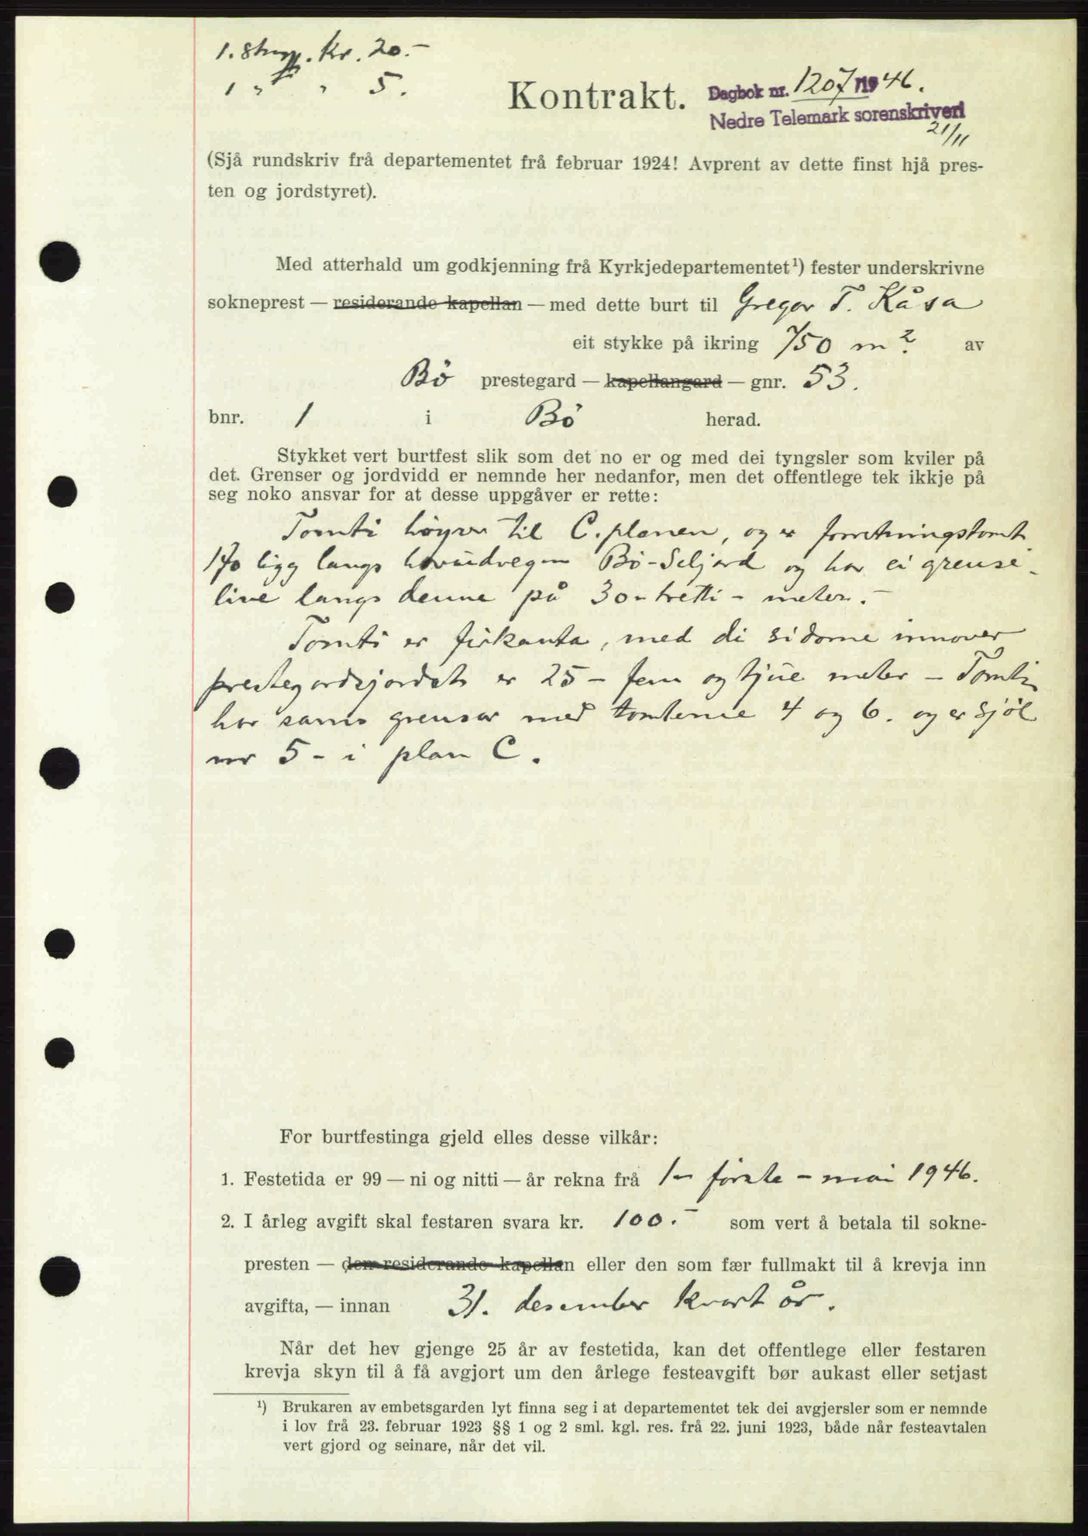 1. st Kr. 20.-
1 " " 5.
Kontrakt.
Dagbok nr. 1207/1946.
Nedre Telemark sorenskriveri
21/11
(Sjå rundskriv frå departementet frå februar 1924! Avprent av dette finst hjå pres-
ten og jordstyret).
Med atterhald um godkjenning frå Kyrkjedepartementet¹) fester underskrivne
sokneprest — residerande kapellan — med dette burt til Gregor T. Kåsa
eit stykke på ikring 750 m². av
Bö prestegard — kapellangard — gnr. 53.
bnr. 1 i Bö herad.
Stykket vert burtfest slik som det no er og med dei tyngsler som kviler på
det. Grenser og jordvidd er nemnde her nedanfor, men det offentlege tek ikkje på
seg noko ansvar for at desse uppgåver er rette:
Tomti höyrer til C. planen, og er forretningstomt
ligg langs hovudvegen Bö-Seljord og har ei grense-
line langs denne på 30 - tretti - meter.-
Tomti er firkanta, med di sidorne innover
prestegardsjordet er 25 - fem og tjue meter - Tomti
har sams grensor med tomterne 4 og 6. og er sjöl
nr 5 - i plan C.
For burtfestinga gjeld elles desse vilkår:
1. Festetida er 99 — ni og nitti — år rekna frå 1- förste - mai 1946.
2. I årleg avgift skal festaren svara kr. 100.- som vert å betala til sokne-
presten — den residerande kapellan eller den som fær fullmakt til å krevja inn
avgifta, — innan 31. desember kvart år.
Når det hev gjenge 25 år av festetida, kan det offentlege eller festaren
krevja skyn til å få avgjort um den årlege festeavgift bør aukast eller setjast
¹) Brukaren av embetsgarden lyt finna seg i at departementet tek dei avgjersler som er nemnde
i lov frå 23. februar 1923 §§ 1 og 2 sml. kgl. res. frå 22. juni 1923, både når festeavtalen
vert gjord og seinare, når det vil.